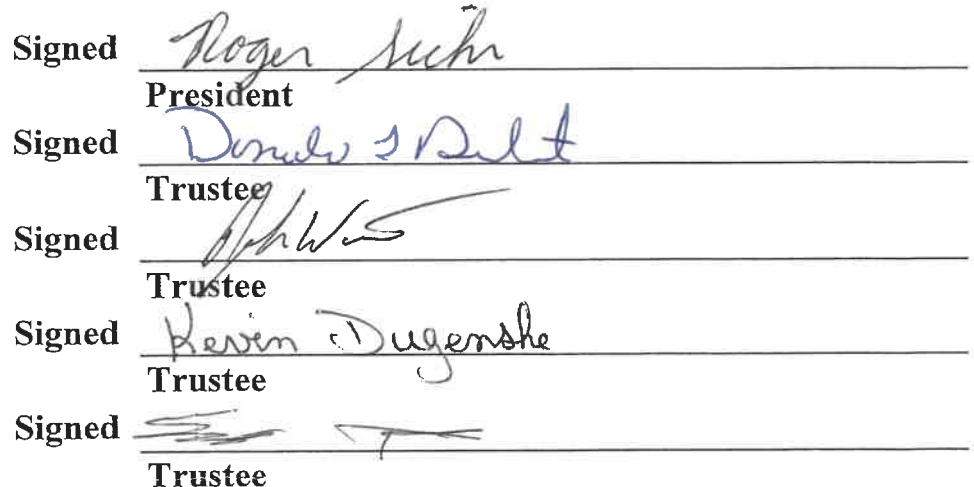 Signed Roger Suhr
President
Signed Donald J
Trustee
Signed
Trustee
Signed Kevin Dugenske
Trustee
Signed
Trustee